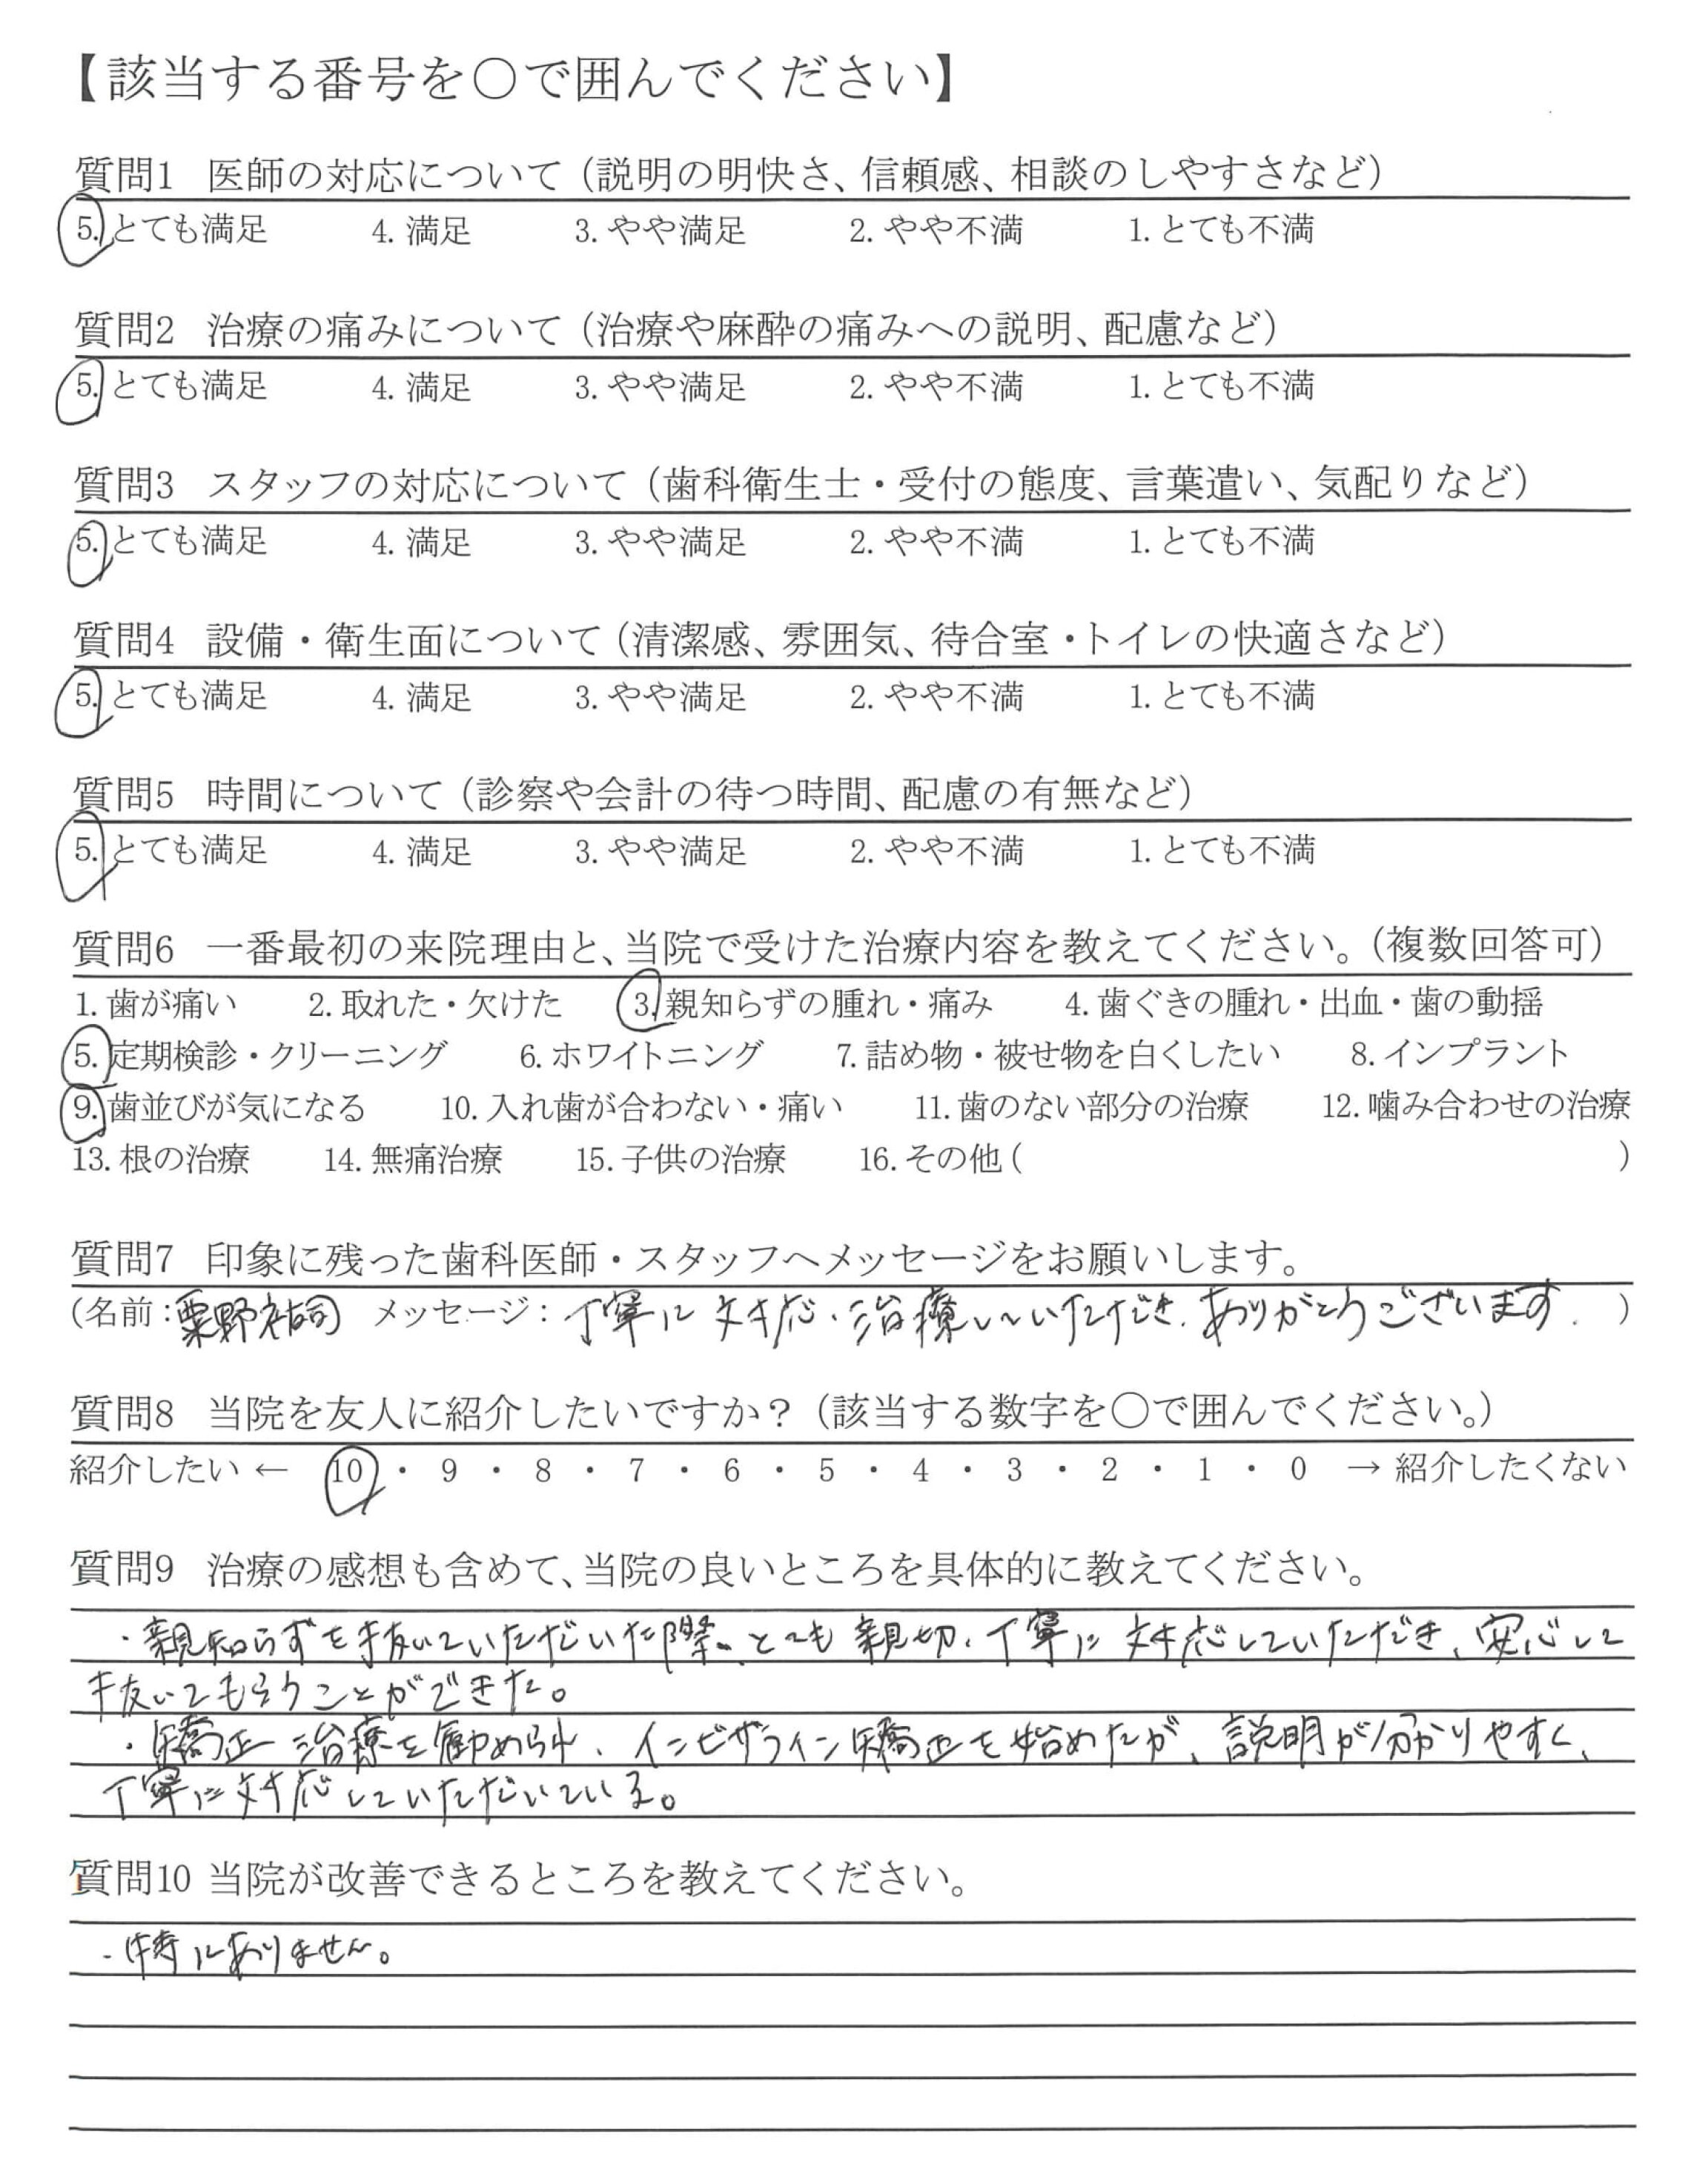 【該当する番号を○で囲んでください】
質問1 医師の対応について（説明の明快さ、信頼感、相談のしやすさなど）
5. とても満足 4. 満足 3. やや満足 2. やや不満 1. とても不満
質問2 治療の痛みについて（治療や麻酔の痛みへの説明、配慮など）
5. とても満足 4. 満足 3. やや満足 2. やや不満 1. とても不満
質問3 スタッフの対応について（歯科衛生士・受付の態度、言葉遣い、気配りなど）
5. とても満足 4. 満足 3. やや満足 2. やや不満 1. とても不満
質問4 設備・衛生面について（清潔感、雰囲気、待合室・トイレの快適さなど）
5. とても満足 4. 満足 3. やや満足 2. やや不満 1. とても不満
質問5 時間について（診察や会計の待つ時間、配慮の有無など）
5. とても満足 4. 満足 3. やや満足 2. やや不満 1. とても不満
質問6 一番最初の来院理由と、当院で受けた治療内容を教えてください。（複数回答可）
1. 歯が痛い 2. 取れた・欠けた 3. 親知らずの腫れ・痛み 4. 歯ぐきの腫れ・出血・歯の動揺
5. 定期検診・クリーニング 6. ホワイトニング 7. 詰め物・被せ物を白くしたい 8. インプラント
9. 歯並びが気になる 10. 入れ歯が合わない・痛い 11. 歯のない部分の治療 12. 噛み合わせの治療
13. 根の治療 14. 無痛治療 15. 子供の治療 16. その他（ ）
質問7 印象に残った歯科医師・スタッフへメッセージをお願いします。
（名前：粟野祐司 メッセージ：丁寧に対応・治療していただき、ありがとうございます。）
質問8 当院を友人に紹介したいですか？（該当する数字を○で囲んでください。）
紹介したい ← 10 ・ 9 ・ 8 ・ 7 ・ 6 ・ 5 ・ 4 ・ 3 ・ 2 ・ 1 ・ 0 → 紹介したくない
質問9 治療の感想も含めて、当院の良いところを具体的に教えてください。
・親知らずを抜いていただいた際、とても親切、丁寧に対応していただき、安心して
抜いてもらうことができた。
・矯正治療を勧められ、インビザライン矯正を始めたが、説明が分かりやすく、
丁寧に対応していただいている。
質問10 当院が改善できるところを教えてください。
・特にありません。